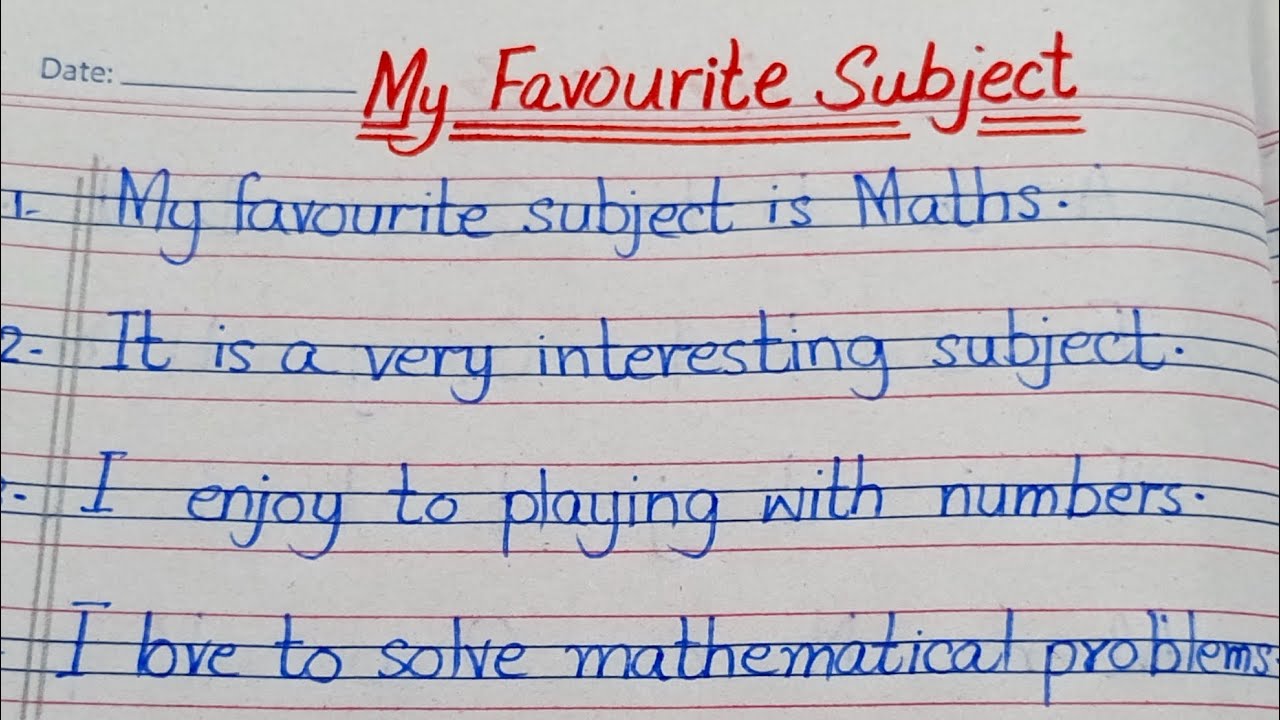 Date:
My Favourite Subject
1- My favourite subject is Maths.
2- It is a very interesting subject.
I enjoy to playing with numbers.
I love to solve mathematical problems